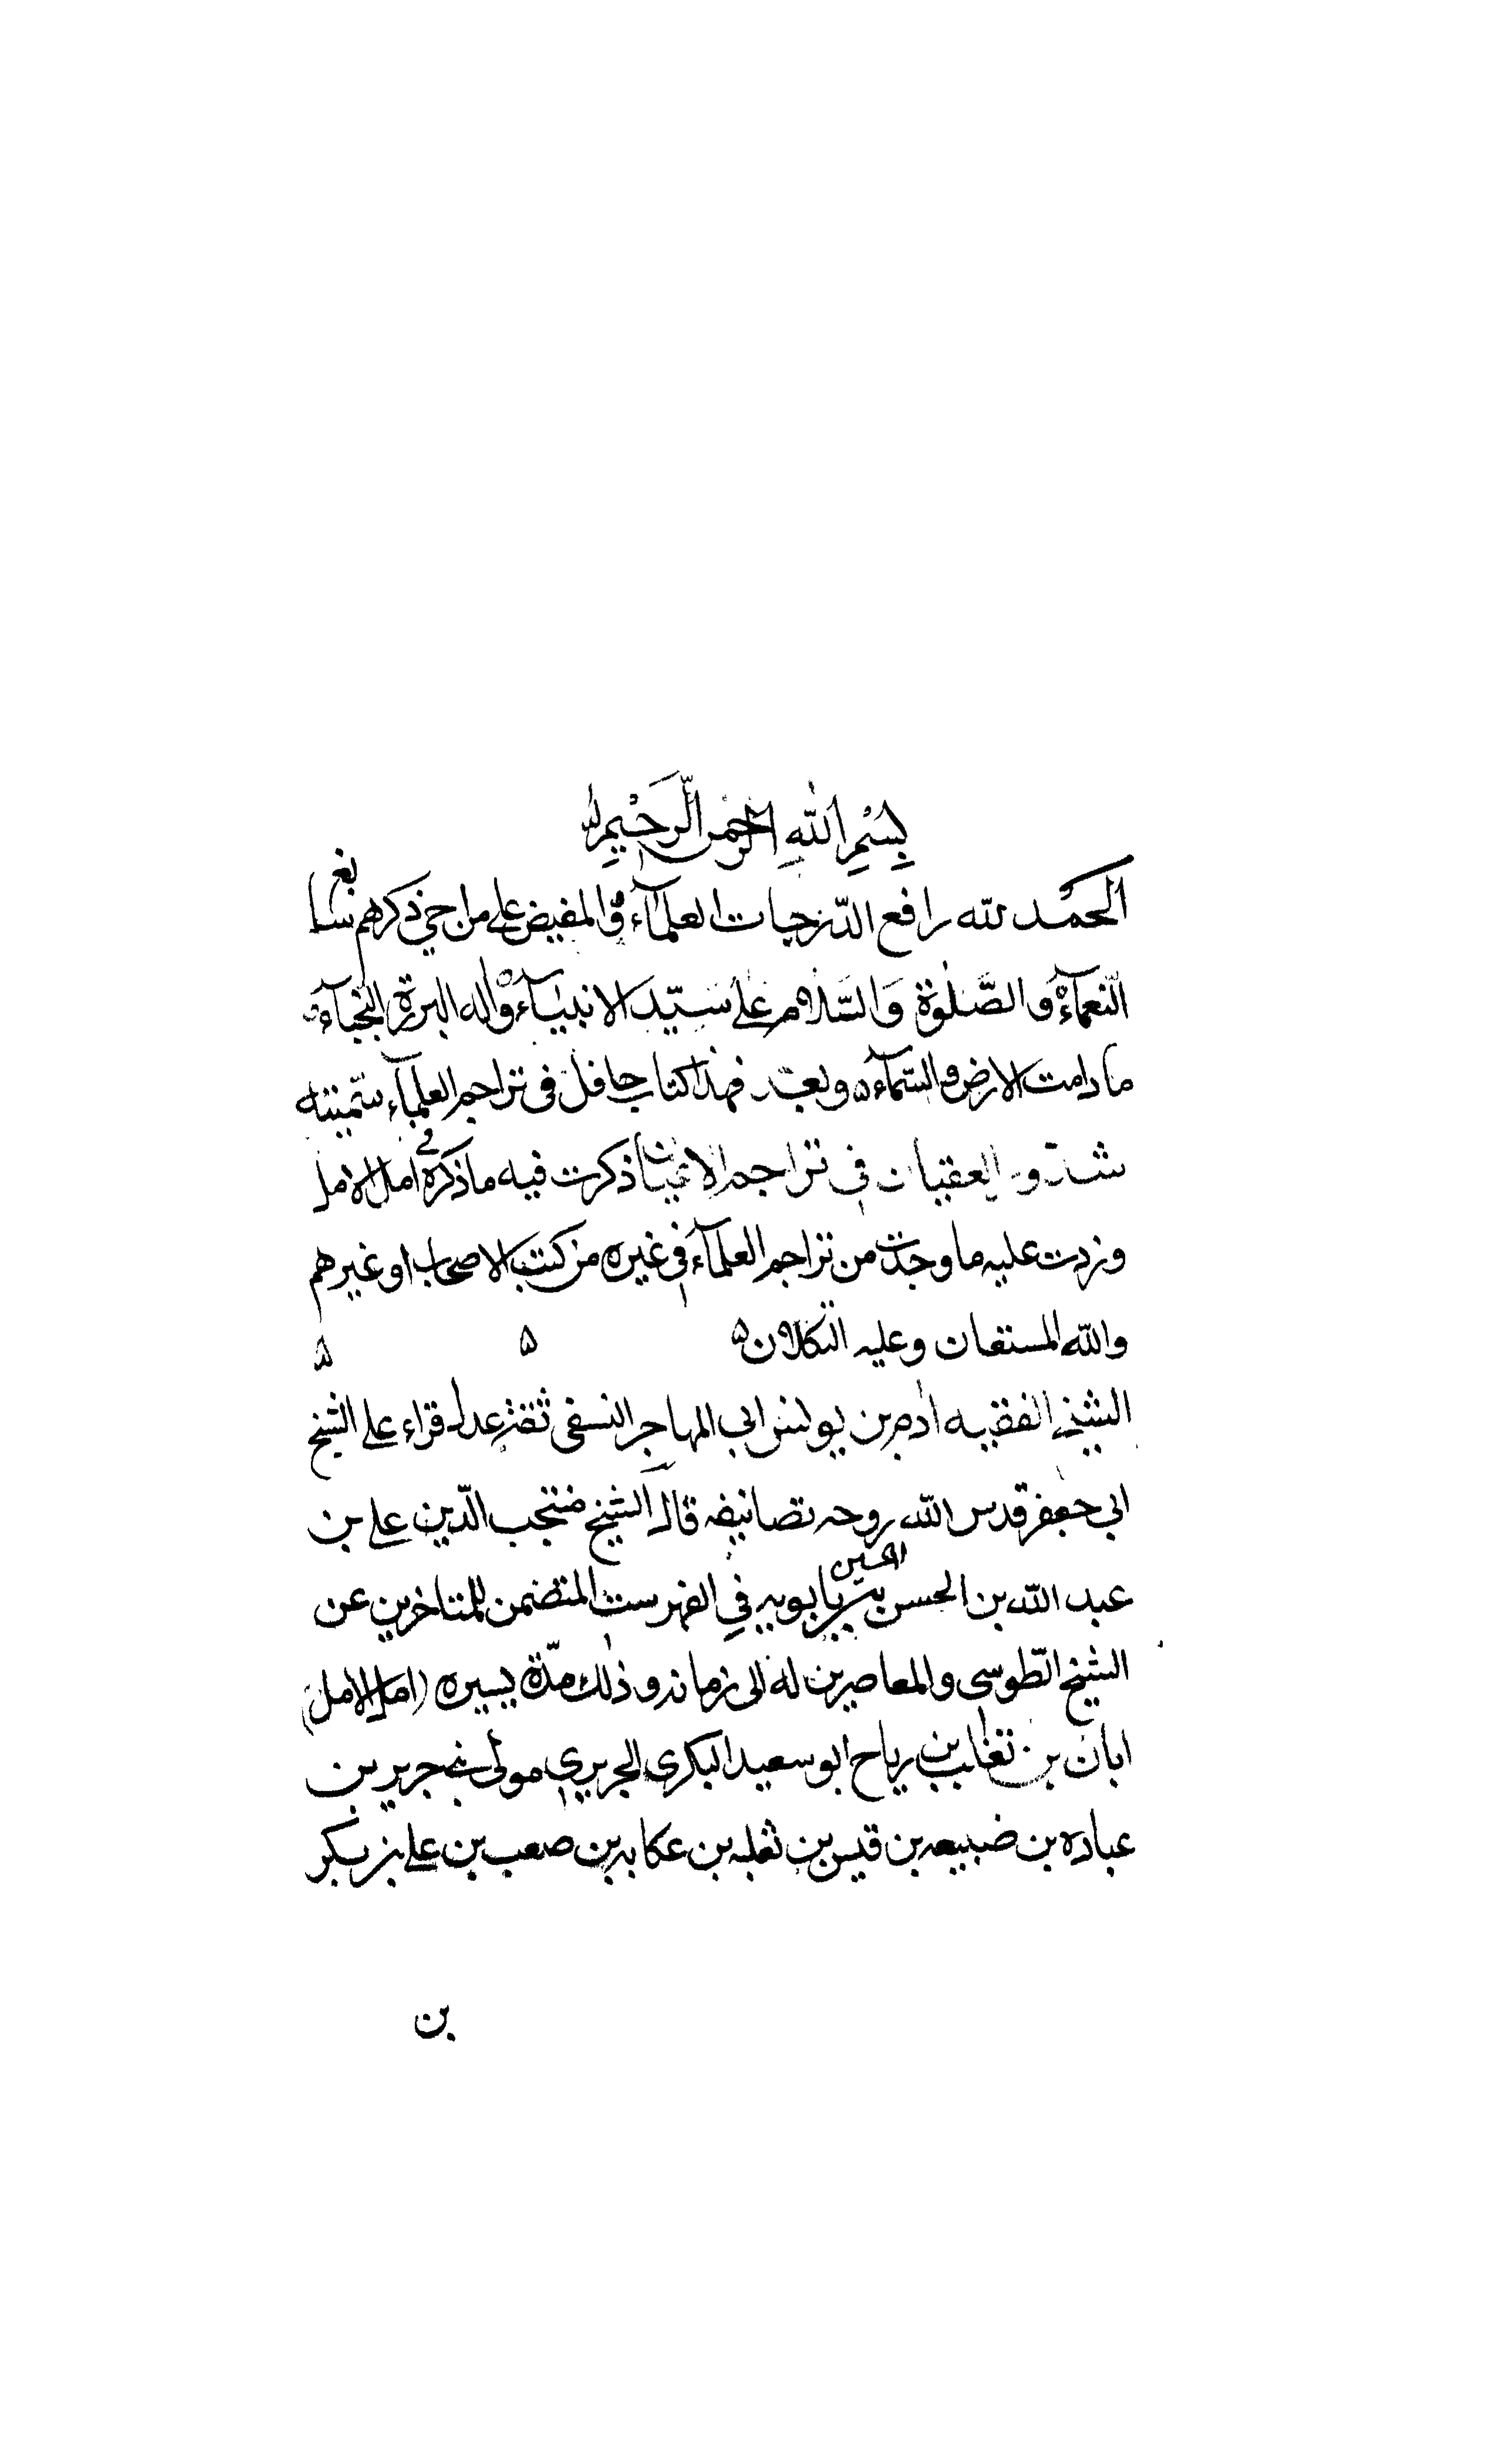 بِسْمِ اللهِ الرَّحْمٰنِ الرَّحِيْمِ
الحمد لله رافع الدّرجات العلمآء والمفيض على من احيى ذكرهم
النّعمآء والصَّلٰوة والسَّلام على سيّد الانبيآء واٰله البررة النجبآء
ما دامت الارض والسّمآء وبعد فهذا كتاب حافل فى تراجم العلمآء سمّيته
شذور العقيان فى تراجم الاعيان ذكرت فيه ما ذكره فى امل الامل
وزدت عليه ما وجدت من تراجم العلمآء فى غيره من كتب الاصحاب او غيرهم
والله المستعان وعليه التكلان
الشيخ الفقيه اٰدم بن يونس ابى المهاجر النسفى ثقة عدل قراء على الشيخ
ابى جعفر قدس الله روحه تصانيفه قال الشيخ منتجب الدّين على بن
عبد الله بن الحسن بن الحسين بن بابويه فى الفهرست المتضمن للمتاخرين عن
الشيخ الطّوسى والمعاصرين له الى زمانه وذٰلك مدّة يسيره (امل الامل)
ابان بن تغلب بن رياح ابو سعيد البكرى الجريرى مولى بنى جرير بن
عباده بن ضبيعه بن قيس بن ثعلبه بن عكابه بن صعب بن على بن بكر
بن